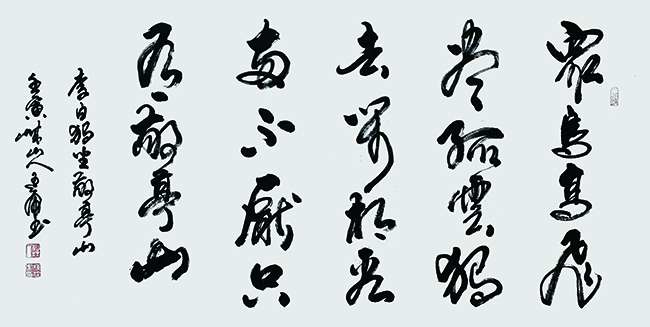 眾鳥高飛
盡孤雲獨
去閒相看
兩不厭只
有敬亭山
李白獨坐敬亭山
壬寅山人书